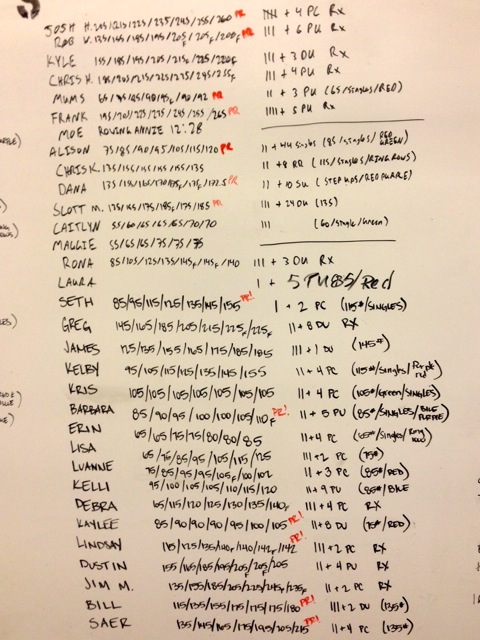 JOSH H. 205/215/225/235/245/255/260 PR IIII + 4 PC RX
ROB V. 135/155/185/195/205F/205F/200F PR III + 6 PU RX
KYLE 155/185/195/205/215F/225/220F III + 3 DU RX
CHRIS H. 185/205/215/225/235/245/255F III + 4 PU RX
MUMS 65/75/85/90/95F/90/92 PR II + 3 PU (65/SINGLES/RED)
FRANK 195/205/225/235/245/255/265 PR IIII + 5 PU RX
MOE ROWING ANNIE 12:28
ALISON 75/85/90/95/105/115/120 PR II + 44 Singles (85/singles/RED GREEN)
CHRIS K. 135/155/155/155/155/135 II + 8 RR (115/singles/RING ROWS)
DANA PR II + 10 SU (STEP UPS/RED PURPLE)
SCOTT M. 135/165/175/185F/175/185 PR III + 24 DU (135)
CAITLYN 55/60/65/65/65/70/70 III (60/single/Green)
MAGGIE 55/65/65/75/75/75
RONA 85/105/125/135/145F/145F/140 III + 3 DU RX
LAURA 1 + 5 PU 85/Red
SETH 85/95/115/125/135/145/155 PR! 1 + 2 PC (115#/SINGLES)
GREG 145/165/185/205/215/225F/225F II + 8 DU RX
JAMES 125/135/155/165/175/185/185 III + 1 DU (145#)
KELBY 95/105/115/125/135/145/155 II + 4 PC (115#/Singles/Purple red)
KRIS 105/105/105/105/105/105/105 II + 4 PC (105#/Green/SINGLES)
BARBARA 85/90/95/100/100/105/110F PR! II + 5 PU (85#/SINGLES/BLUE PURPLE)
ERIN 65/65/75/75/80/80/85 II + 4 PC (65#/Singles/Ring rows)
LISA 65/75/85/95/105/115/125 III + 2 PC (75#)
LUANNE 75/85/95/95/105F/100/102 II + 3 PC (85#/RED)
KELLI 95/100/105/105/110/115/120 II + 9 PU (85#/BLUE
DEBRA 65/115/120/125/130/135/140F III + 4 PC RX
KAYLEE 85/90/90/90/95/100/105 PR! II + 8 DU (75#/RED)
LINDSAY 115/125/135/140F/140/142F/142 PR! III + 2 PC RX
DUSTIN 155/165/185/195/205F/205/205 II + 4 PU RX
JIM M. 135/155/185/205/225/245/235F II + 2 PC RX
BILL 115/135/155/175/175/175/180 PR! III + 2 DU (135#)
SAER 135/145/165/175/195/205/215 PR! II + 4 PC (135#)